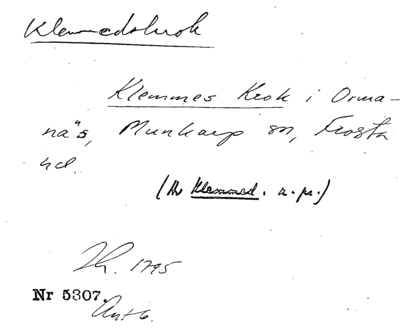 Klemmedskrok
Klemmes Krok i Orma-
näs, Munkarp sn, Frosta
hd.
(Klemmed. a. p.)
Th. 1795
Nr 5307.